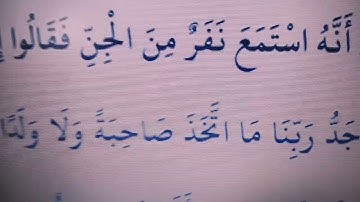 أَنَّهُ اسْتَمَعَ نَفَرٌ مِنَ الْجِنِّ فَقَالُوا
جَدُّ رَبِّنَا مَا اتَّخَذَ صَاحِبَةً وَلَا وَلَدًا